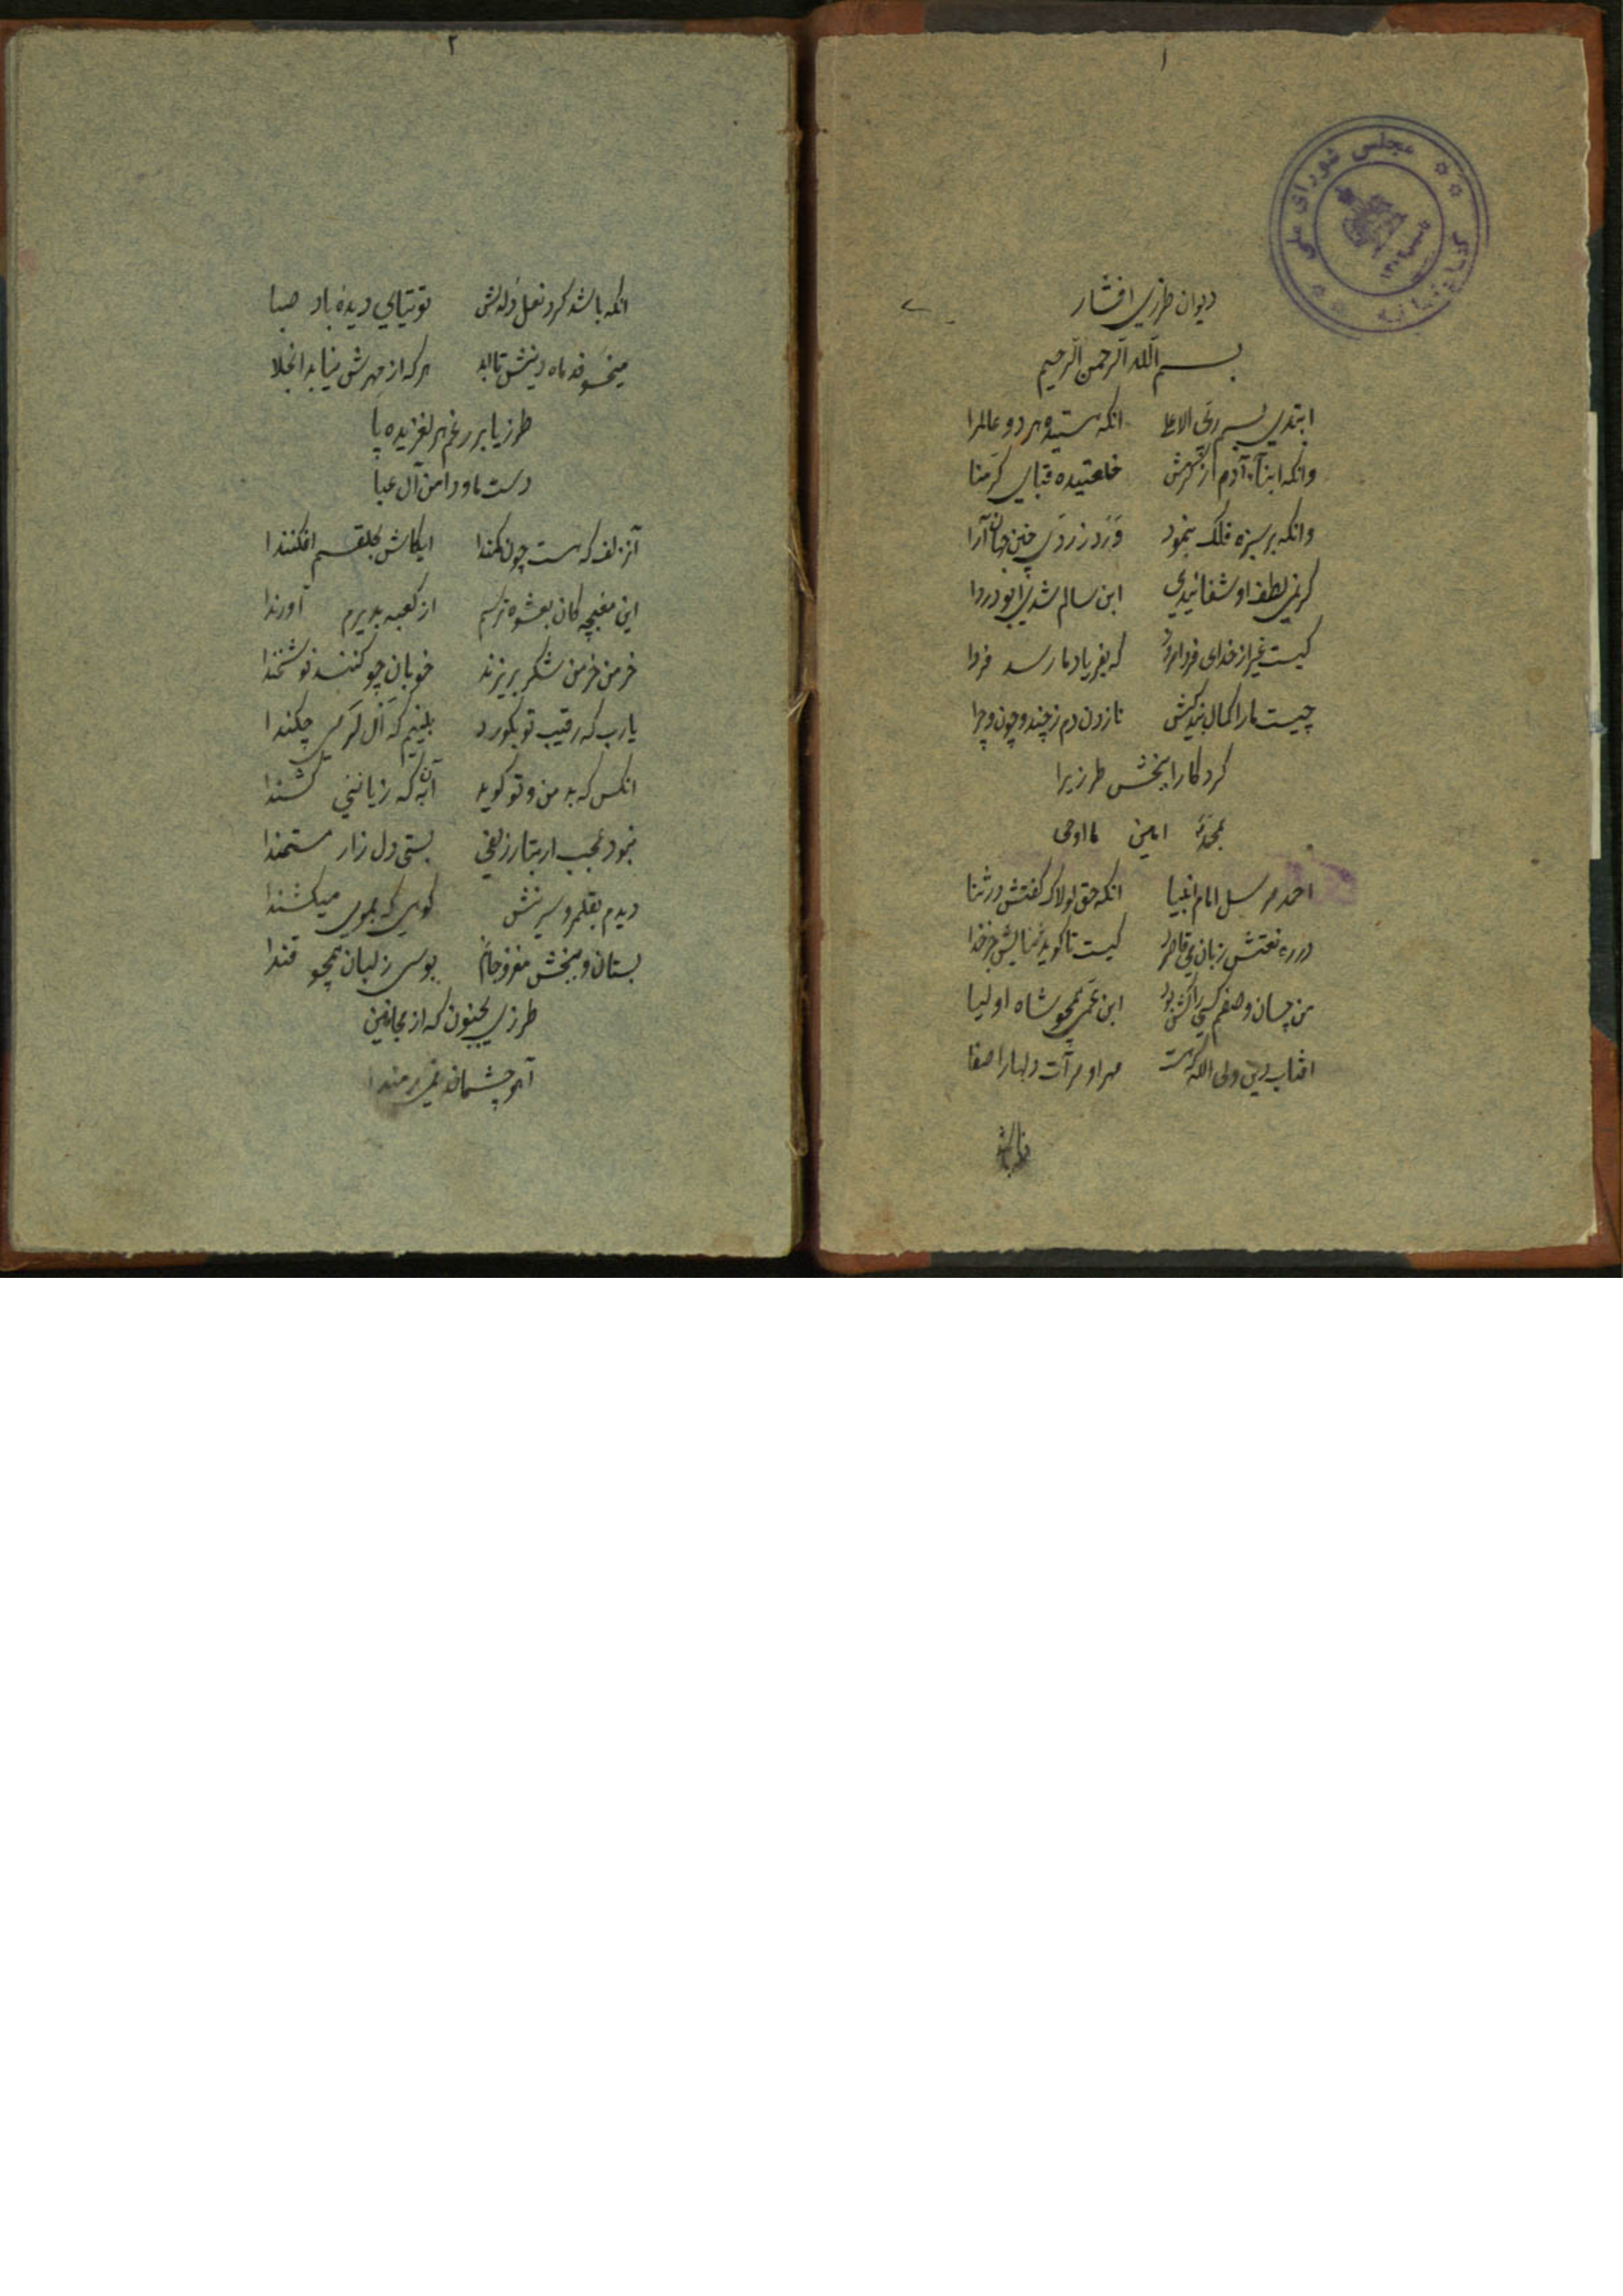 ۱
مجلس شورای ملی
دیوان طرزی افشار
بسم الله الرحمن الرحیم
ابتدی بسم ربی الاعلا انکه هستیده هر دو عالمرا
وانکه ابناء آدم از کرمش خلعتیده قبای کرمنا
وانکه بر سبزه فلک بنمود ورد زردی چنین جهان آرا
گرنمی لطف او شفائیدی ابن سالم شدی ابودردا
کیست غیر از خدای فرد امروز که بفریاد ما رسد فردا
چیست ما را کمال تا زدن دم ز چند و چون و چرا
کردکارا ببخش طرزیرا
بمحمد امین ما اوحی
احمد مرسل امام انبیا انکه حق لولاک گفتش در ثنا
در ره نعتش زبان می قاصرد کیست تا گوید ثنایش جز خدا
من چسان وصفم کسی را کش بود ابن عمی همچو شاه اولیا
افتاب دین ولی الله که هست مهر او مرآت دلها را صفا
۲
انکه باشد گرد نعل دلدلش توتیای دیده باد صبا
میخسوفد ماه دینش تا ابد هر که از مهرش نیابد انجلا
طرزیا بر رغم هر لغزیده پا
دست ما و دامن آل عبا
آنزلف که هست چون کمندا ایکاش بحلقم افکندا
این مغبچه کان بعشوه ترسم از کعبه بدیرم آورندا
خرمن خرمن شکر بریزند خوبان چو کنند نوشخندا
یارب که رقیب تو بکورد
انکس که بد من و تو گوید آن به که زبانش کشندا
بستی دل زار مستمندا
دیدم بقلمرو سرینش کوهی که بموی میکشندا
بستان و ببخش مغز و جانم بوسی ز لبان همچو قندا
طرزی مجنون که از مجانین
آهو چشمان نمی رمندا